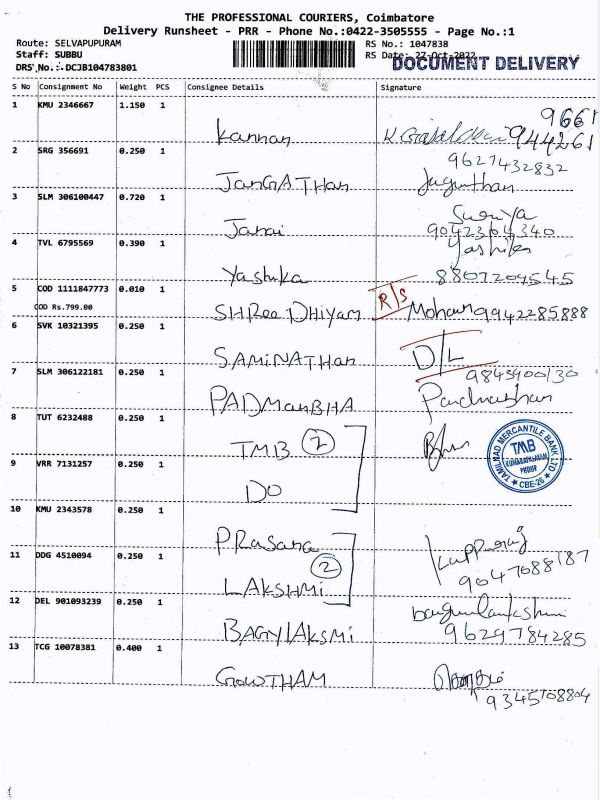 THE PROFESSIONAL COURIERS, Coimbatore
Delivery Runsheet - PRR - Phone No.:0422-3505555 - Page No.:1
Route: SELVAPUPURAM RS No.: 1047838
Staff: SUBBU RS Date: 27-Oct-2022
DRS No.:-DCJB104783801 DOCUMENT DELIVERY
S No Consignment No Weight PCS Consignee Details Signature
1 KMU 2346667 1.150 1
9661
Kannan 944261
2 SRG 356691 0.250 1
9627432832
JanGATHan Jaganthan
3 SLM 306100447 0.720 1
Suriya
Janai 9042364340
4 TVL 6795569 0.390 1
Yashika
Yashika 8807209545
5 COD 1111847773 0.010 1
COD Rs.799.00
SHRee DHiyam R/S Mohan 9942285888
6 SVK 10321395 0.250 1
SAMiNATHan D/L
7 SLM 306122181 0.250 1
9843900130
PADManBHA
8 TUT 6232488 0.250 1
TMB 2
TAMILNAD MERCANTILE BANK LTD
TMB
CBE-26
9 VRR 7131257 0.250 1
DO
10 KMU 2343578 0.250 1
PRasana
11 DDG 4510094 0.250 1
2
LAKSHMi 9047088187
12 DEL 901093239 0.250 1
BAGYlAKSMi 9629784285
13 TCG 10078381 0.400 1
GOWTHAM
9345108804